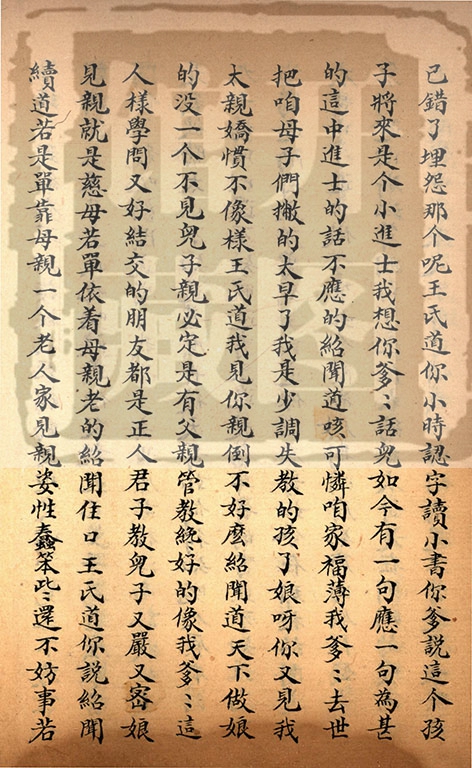 已錯了埋怨那个呢王氏道你小時認字讀小書你爹說這个孩
子將來是个小進士我想你爹〻話兒如今有一句應一句為甚
的這中進士的話不應的紹聞道咳可憐咱家福薄我爹〻去世
把咱母子們撇的太早了我是少調失教的孩子娘呀你又見我
太親嬌慣不像樣王氏道我見你親倒不好麽紹聞道天下做娘
的没一个不見兒子親必定是有父親管教纔好的像我爹〻這
人樣學問又好結交的朋友都是正人君子教兒子又嚴又密娘
見親就是慈母若單依着母親老的紹聞住口王氏道你說紹聞
續道若是單靠母親一个老人家見親姿性蠢笨些〻還不妨事若